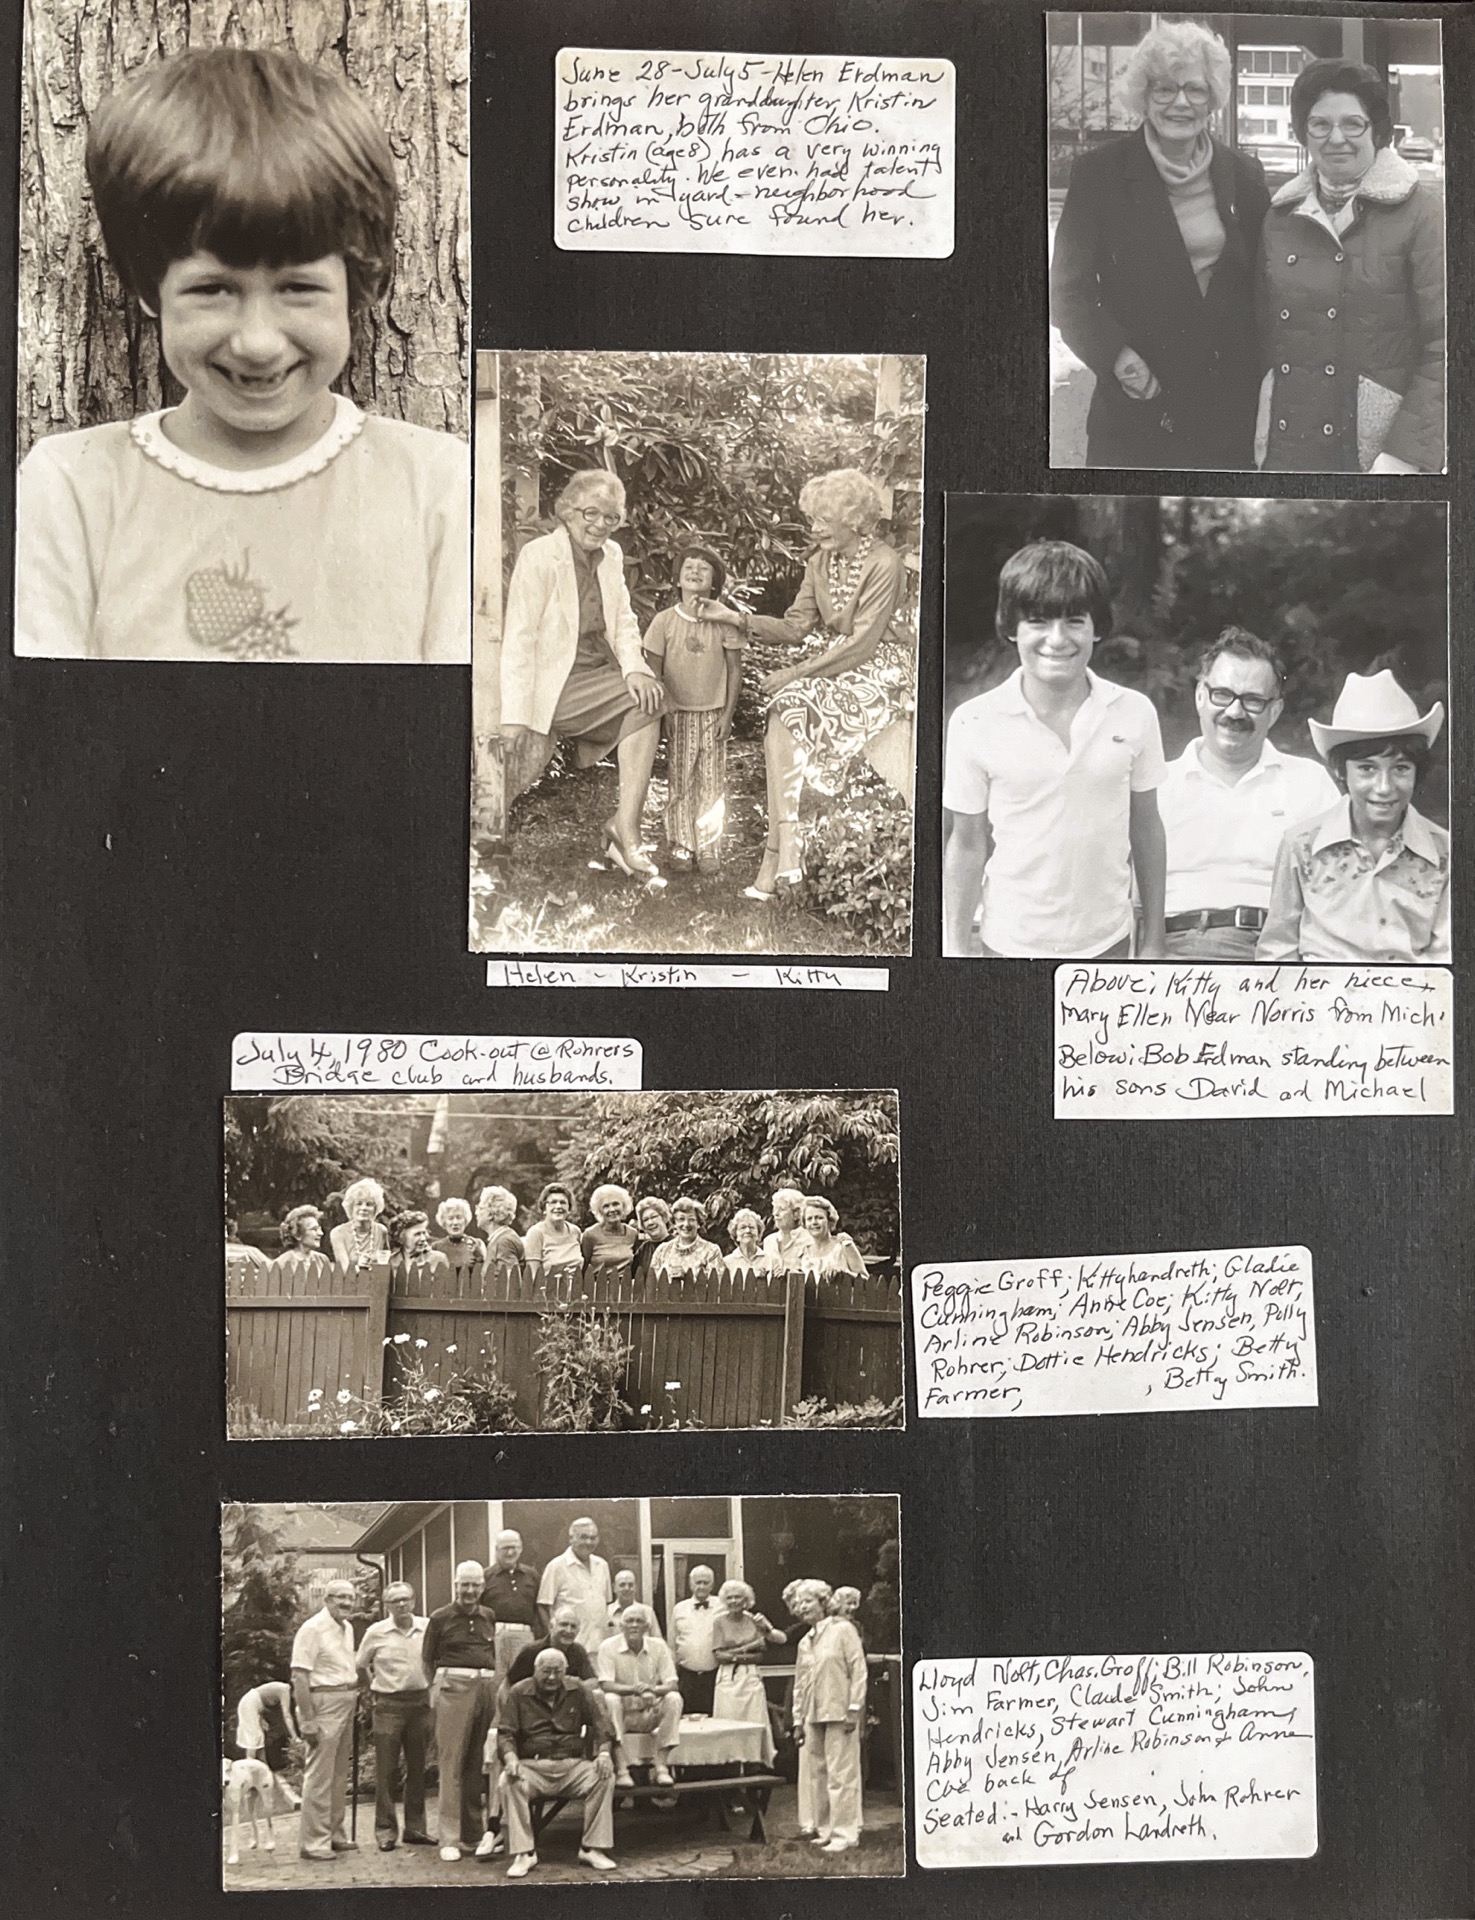 June 28-July 5-Helen Erdman
brings her granddaughter, Kristin
Erdman, both from Ohio.
Kristin (age 8) has a very winning
personality. We even had talent
show in yard - neighborhood
children sure found her.
Helen - Kristin - Kitty
Above: Kitty and her niece,
Mary Ellen Near Norris from Mich.
Below: Bob Erdman standing between
his sons David and Michael
July 4, 1980 Cook-out @ Rohrers
Bridge club and husbands.
Peggie Groff; Kitty Landreth; Gladie
Cunningham; Anne Coe; Kitty Nolt,
Arline Robinson; Abby Jensen, Polly
Rohrer; Dottie Hendricks; Betty
Farmer, , Betty Smith.
Lloyd Nolt, Chas. Groff; Bill Robinson,
Jim Farmer, Claude Smith; John
Hendricks, Stewart Cunningham,
Abby Jensen, Arline Robinson & Anne
Coe back of
Seated:- Harry Jensen, John Rohrer
and Gordon Landreth.